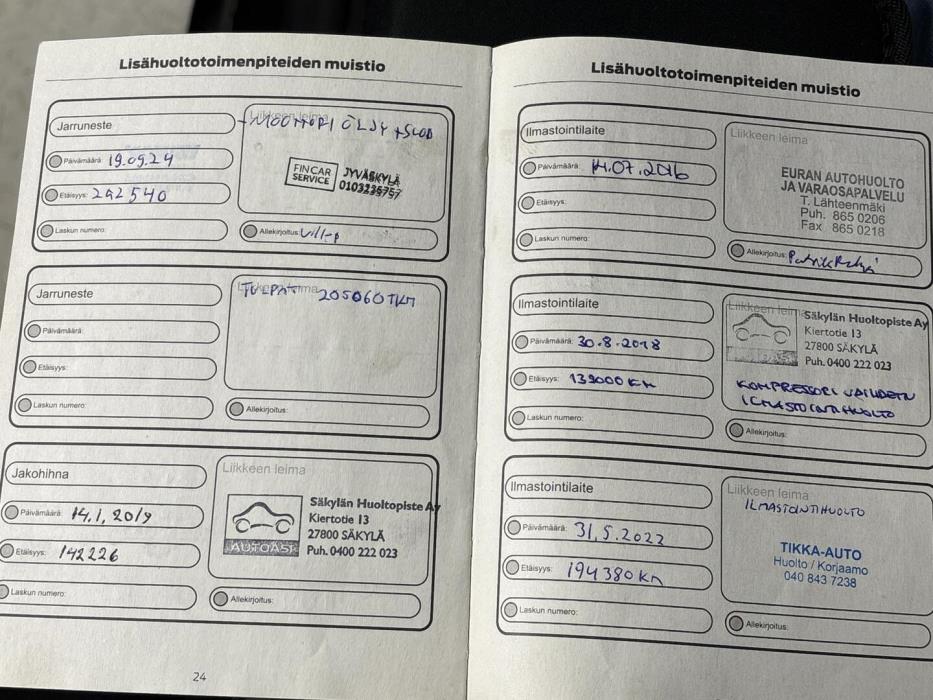 Lisähuoltotoimenpiteiden muistio
Jarruneste
Liikkeen leima
+ MOOTTORI ÖLJY + SUOD
Päivämäärä: 19.09.24
FINCAR SERVICE
JYVÄSKYLÄ
0103235757
Etäisyys: 242540
Laskun numero:
Allekirjoitus: Ville
Jarruneste
TULPAT 205060 TKM
Päivämäärä:
Etäisyys:
Laskun numero:
Allekirjoitus:
Jakohihna
Liikkeen leima
Päivämäärä: 14.1.2019
Säkylän Huoltopiste Ay
Kiertotie 13
27800 SÄKYLÄ
Puh. 0400 222 023
AUTOASI
Etäisyys: 142226
Laskun numero:
Allekirjoitus:
24
Lisähuoltotoimenpiteiden muistio
Ilmastointilaite
Liikkeen leima
Päivämäärä: 14.07.2016
EURAN AUTOHUOLTO
JA VARAOSAPALVELU
T. Lähteenmäki
Puh. 865 0206
Fax 865 0218
Etäisyys:
Laskun numero:
Allekirjoitus:
Ilmastointilaite
Liikkeen leima
Säkylän Huoltopiste Ay
Kiertotie 13
27800 SÄKYLÄ
Puh. 0400 222 023
Päivämäärä: 30.8.2018
Etäisyys: 139000 KM
KOMPRESSORI VAIHDETTU
ILMASTOINTIHUOLTO
Laskun numero:
Allekirjoitus:
Ilmastointilaite
Liikkeen leima
ILMASTOINTIHUOLTO
Päivämäärä: 31.5.2022
TIKKA-AUTO
Huolto / Korjaamo
040 843 7238
Etäisyys: 194380 km
Laskun numero:
Allekirjoitus: